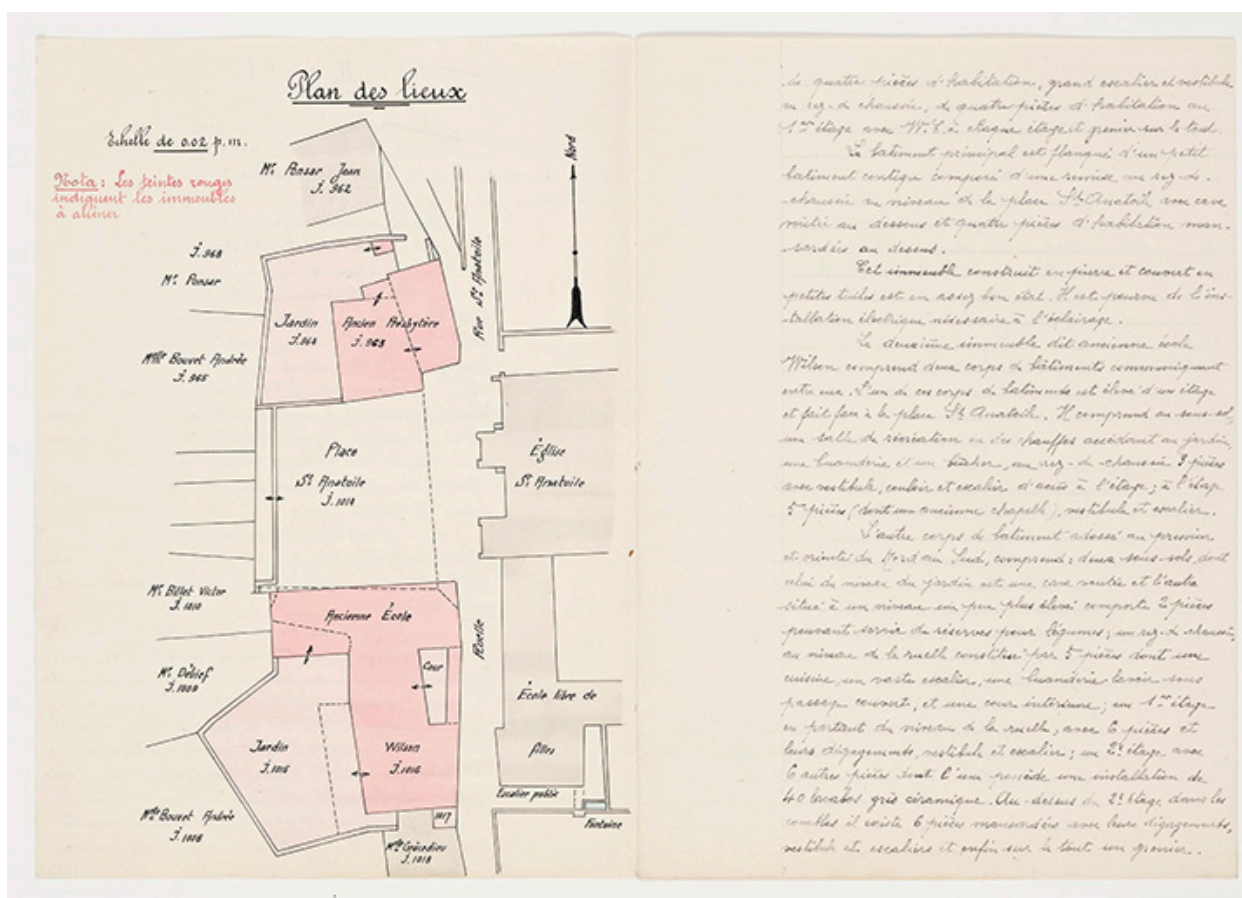 Plan des lieux
Echelle de 0.02 p.m.
Nota : Les teintes rouges
indiquent les immeubles
à aliéner
Nord
Mr Ponser Jean
J. 962
J. 968
Mr Ponser
Jardin
J. 964
Ancien Presbytère
J. 963
Rue St Anatoile
Mlle Bouvet Andrée
J. 965
Place
St Anatoile
J. 1014
Église
St Anatoile
Mr Billet Victor
J. 1010
Ancienne École
Ruelle
Cour
Mr Délief
J. 1009
École libre de
filles
Jardin
J. 1015
Wilson
J. 1016
Escalier public
Fontaine
Mlle Bouvet Andrée
J. 1008
1017
J. 1018
de quatre pièces d'habitation, grand escalier et vestibule
au rez-de chaussée, de quatre pièces d'habitation au
1er étage avec W.C à chaque étage et grenier sur le tout.
Le batiment principal est flanqué d'un petit
batiment contigu composé d'une remise au rez-de-
-chaussée au niveau de la place St Anatoile avec cave
voûtée au dessous et quatre pièces d'habitation man-
-sardées au dessus.
Cet immeuble construit en pierre et couvert en
petites tuiles est en assez bon état. Il est pourvu de l'ins-
-tallation électrique nécessaire à l'éclairage.
Le deuxième immeuble dit ancienne école
Wilson comprend deux corps de bâtiments communiquant
entre eux. L'un de ces corps de batiments est élevé d'un étage
et fait face à la place St Anatoile. Il comprend au sous-sol,
une salle de récréation ou des chauffes accédant au jardin
une buanderie et un bûcher, au rez-de chaussée 3 pièces
avec vestibule, couloir et escalier d'accès à l'étage ; à l'étage
5 pièces (dont une ancienne chapelle), vestibule et escalier.
L'autre corps de batiment adossé au premier
et orienté du Nord au Sud, comprend : deux sous-sols, dont
celui du niveau du jardin est une cave voûtée et l'autre
situé à un niveau un peu plus élevé comporte 2 pièces
pouvant servir de réserves pour légumes ; un rez-de chaussée,
au niveau de la ruelle constitué par 5 pièces dont une
cuisine, un vaste escalier, une buanderie-lavoir sous
passage couvert, et une cour intérieure ; un 1er étage
en partant du niveau de la ruelle, avec 6 pièces et
leurs dégagements, vestibule et escalier ; un 2e étage avec
6 autres pièces dont l'une possède une installation de
40 lavabos grès céramique. Au-dessus du 2e étage dans les
combles il existe 6 pièces mansardées avec leurs dégagements,
vestibule et escaliers et enfin sur le tout un grenier.